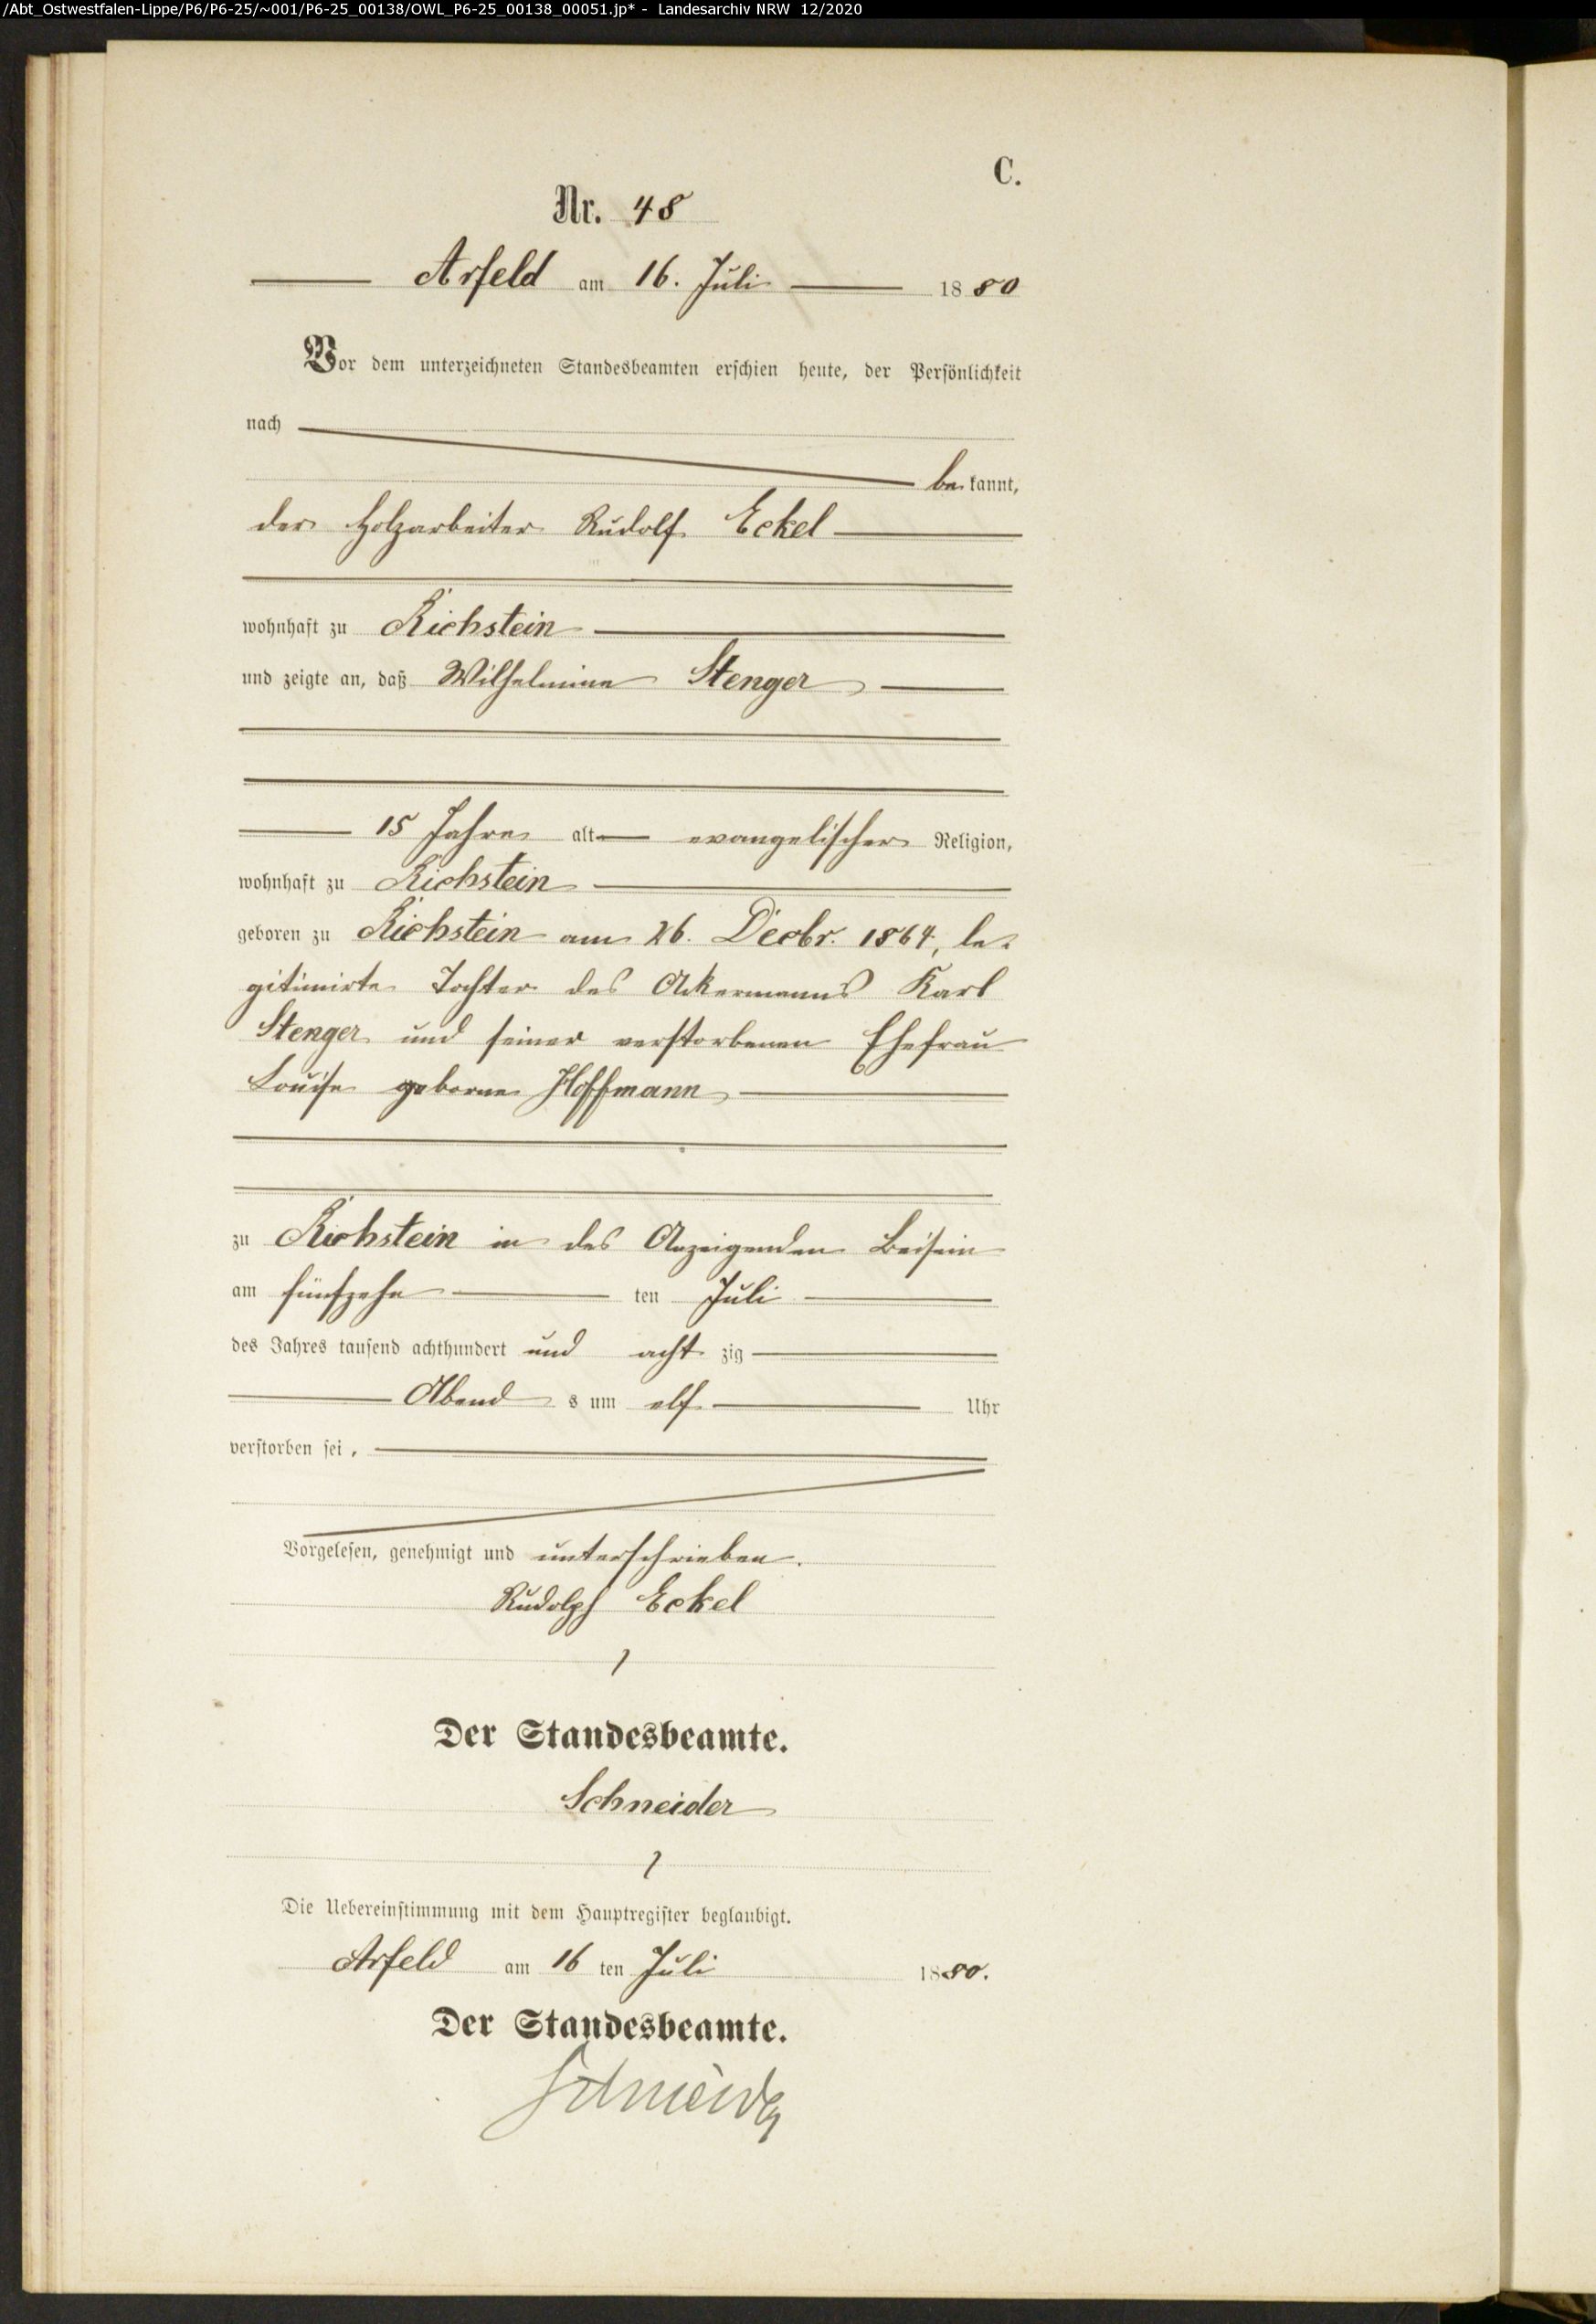 /Abt_Ostwestfalen-Lippe/P6/P6-25/~001/P6-25_00138/OWL_P6-25_00138_00051.jp* - Landesarchiv NRW 12/2020
C.
Nr. 48
Arfeld am 16. Juli 1880
Vor dem unterzeichneten Standesbeamten erschien heute, der Persönlichkeit
nach
bekannt,
der Holzarbeiter Rudolf Eckel
wohnhaft zu Richstein
und zeigte an, daß Wilhelmine Stenger
15 Jahre alt evangelischer Religion,
wohnhaft zu Richstein
geboren zu Richstein am 26. Decbr. 1864, le-
gitimirte Tochter des Ackermanns Karl
Stenger und seiner verstorbenen Ehefrau
Louise geborne Hoffmann
zu Richstein in des Anzeigenden Beisein
am fünfzehn ten Juli
des Jahres tausend achthundert und acht zig
Abend s um elf Uhr
verstorben sei,
Vorgelesen, genehmigt und unterschrieben.
Rudolph Eckel
Der Standesbeamte.
Schneider
Die Uebereinstimmung mit dem Hauptregister beglaubigt.
Arfeld am 16 ten Juli 1880.
Der Standesbeamte.
Schneider